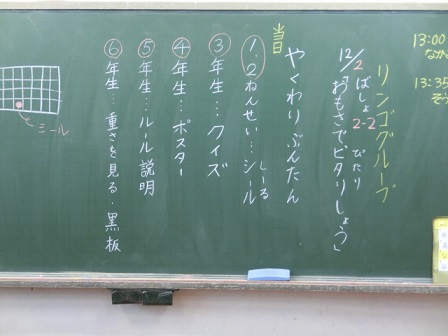 13:00
なかよ
13:35
そう
リンゴグループ
12/2 ばしょ 2-2
「おもさで、ピタリしょう」
ぴたり
当日
やくわりぶんたん
①.②ねんせい…シール
しーる
③年生…クイズ
④年生…ポスター
⑤年生…ルール説明
⑥年生…重さを見る・黒板
シール